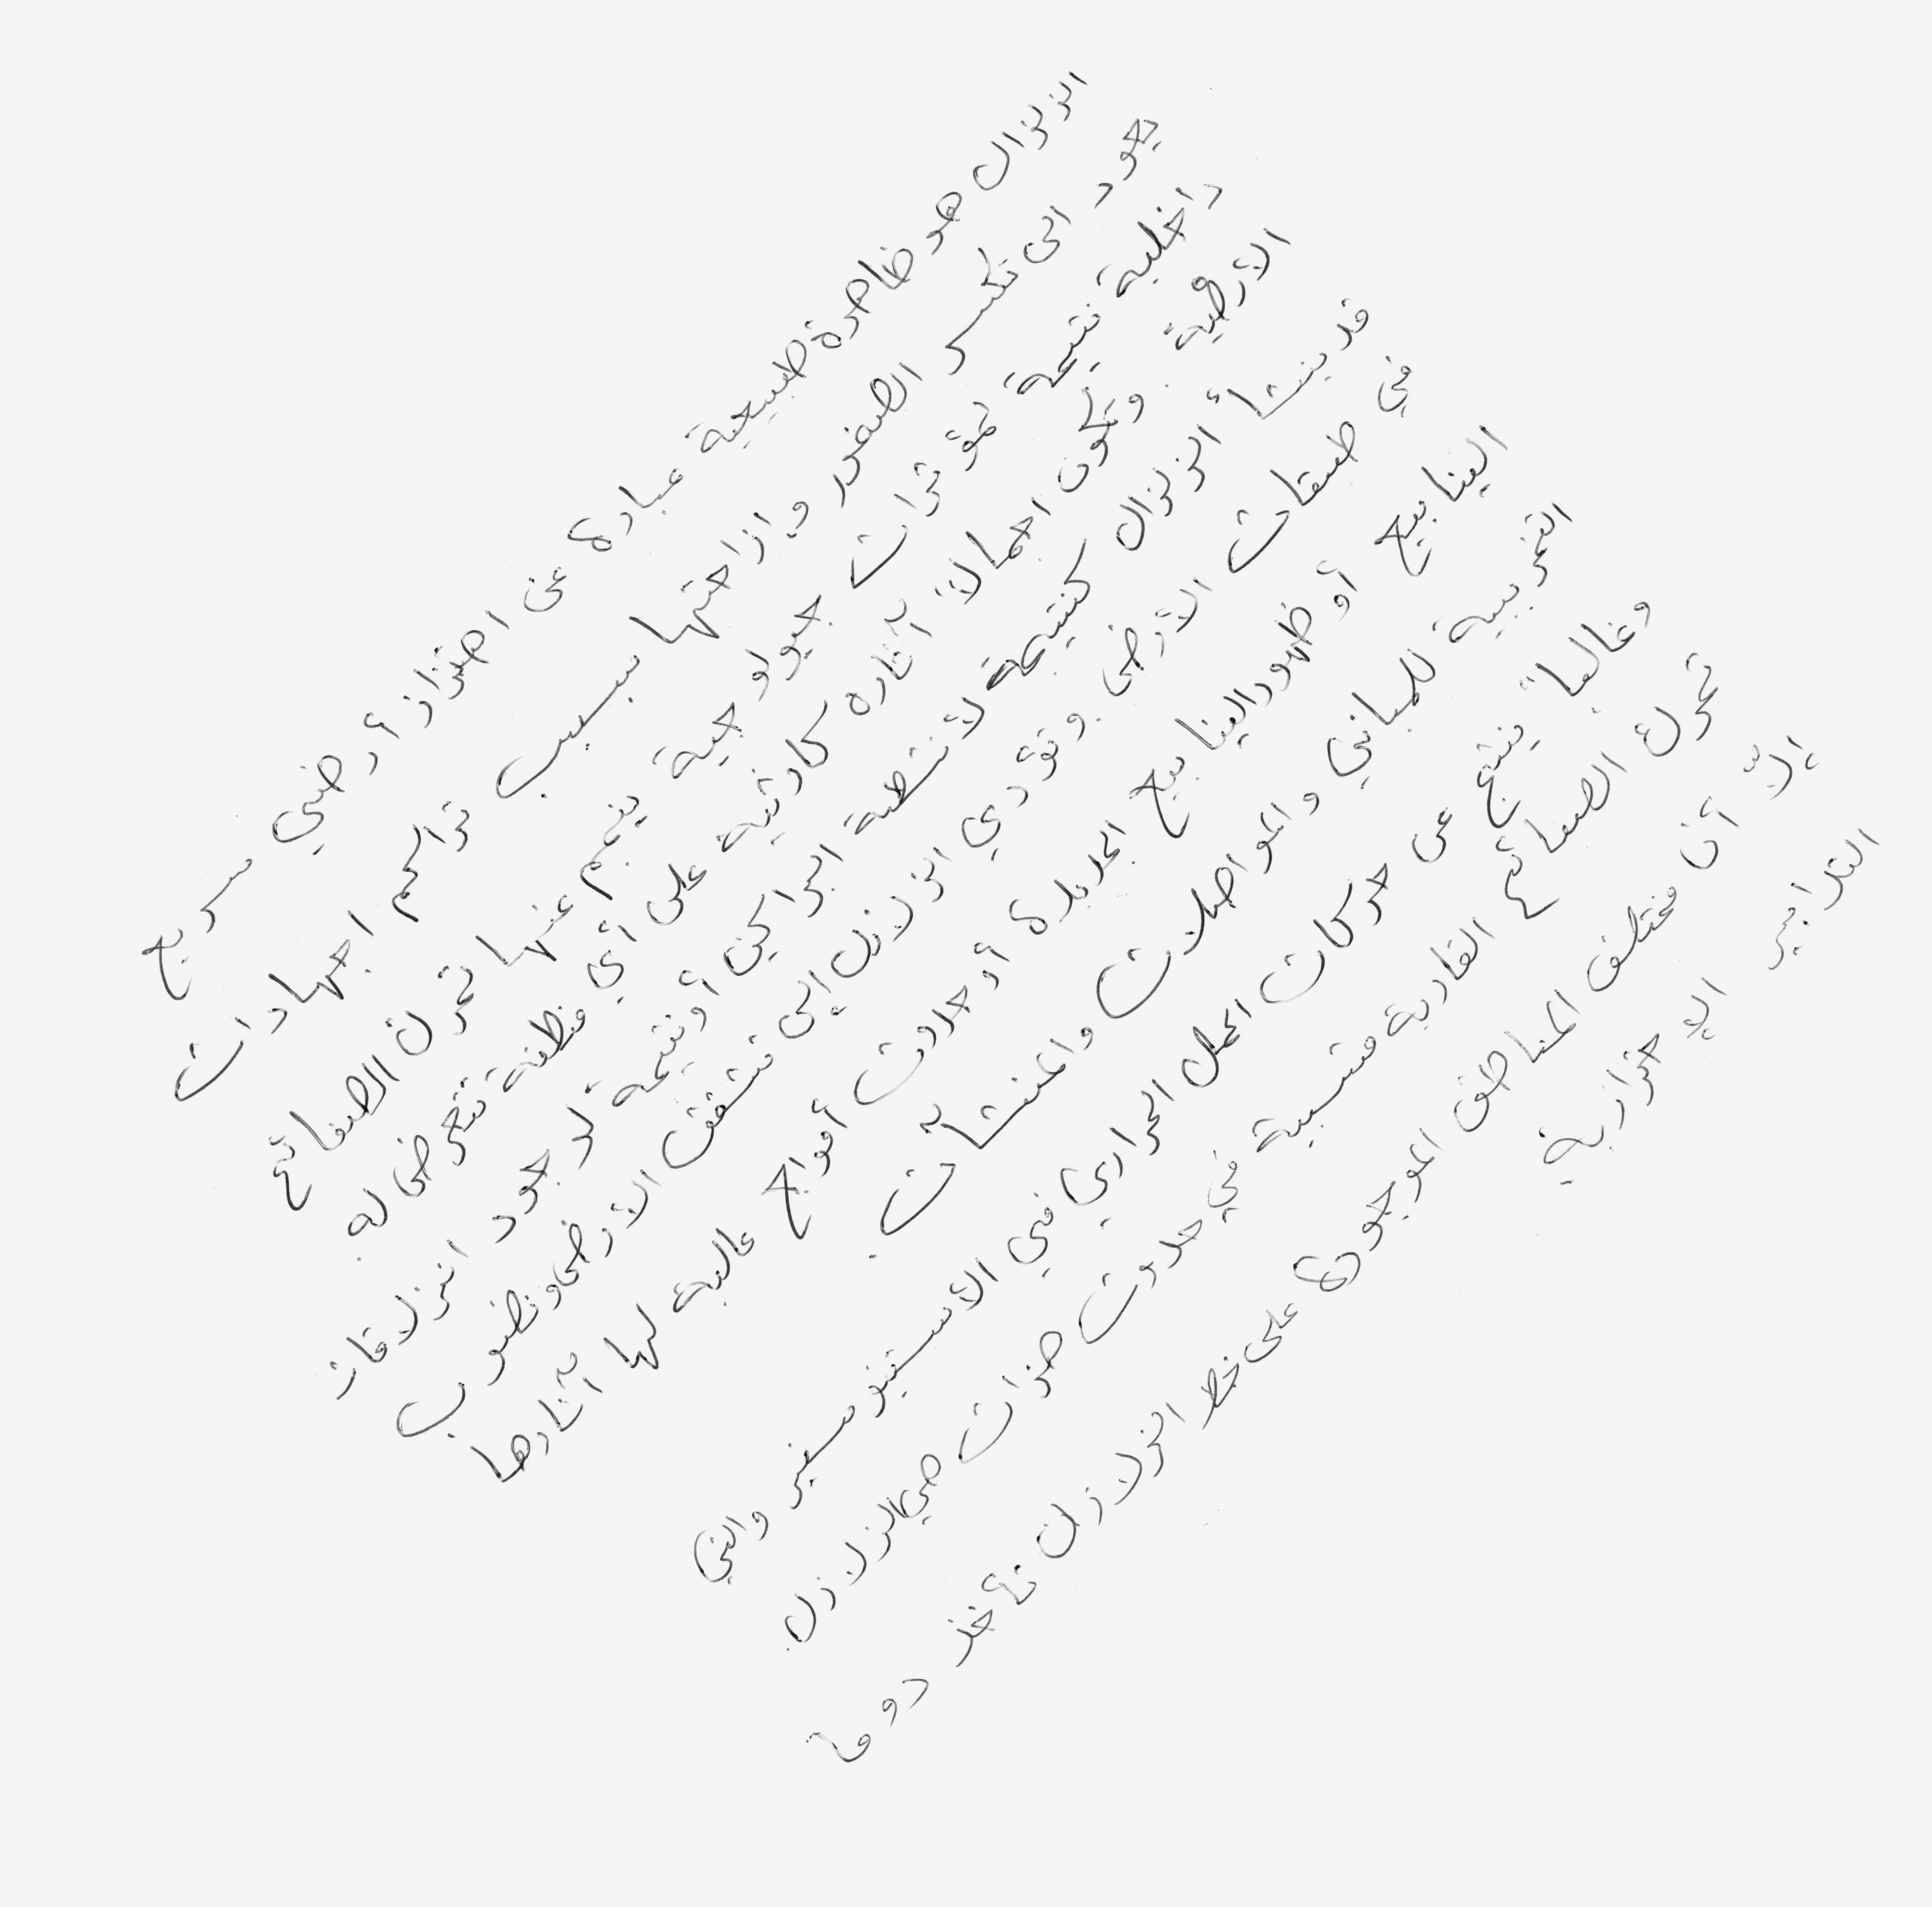 الزلزال هو ظاهرة طبيعية عبارة عن اهتزاز أرضي سريع
يعود الى تكسر الصخور وإزاحتها بسبب تراكم اجهادات
داخلية نتيجة لمؤثرات جيولوجية ينجم عنها تحرك الصفائح
الأرضية. وتكون اجمالاً آثاره كارثية على أي منطقة تتعرض له.
قد ينشأ الزلزال كنتيجة لأنشطة البراكين أو نتيجة لوجود انزلاقات
في طبقات الأرض. وتؤدي الزلازل إلى تشقق الأرض ونضوب
الينابيع أو ظهور الينابيع الجديدة أو حدوث أمواج عالية لها آثارها
التخريبية للمباني والمواصلات والمنشآت.
وغالباً ينتج عن حركات الحمل الحراري في الأسثينوسفير والتي
تحرك الصفائح القارية متسببة في حدوث هزات هي الزلازل.
إلّا أن مختلف المناطق الموجودة على خط الزلازل تأخذ دوما
التدابير الإحترازية.